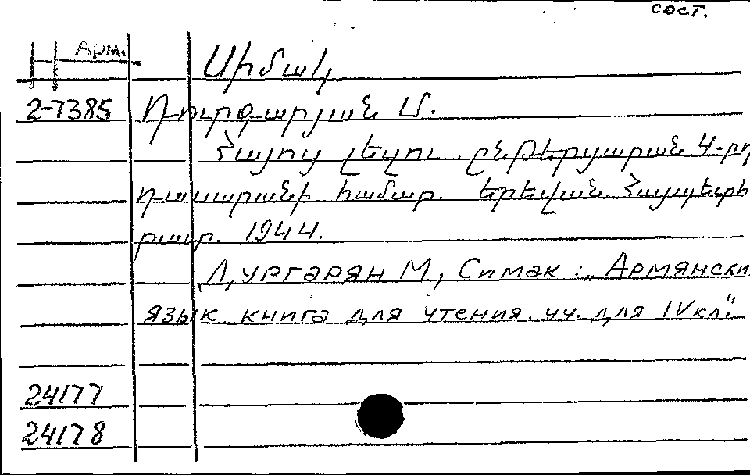 сост.
Арм.
Սիմակ
2-7385 Դուրգարյան Մ.
Հայոց լեզու. ընթերցարան 4-րդ
դասարանի համար. Երեվան Հայպետհ
րատ. 1944.
Дургарян М, Симак: „Армянски
язык книга для чтения. уч. для IV кл."
24177
24178